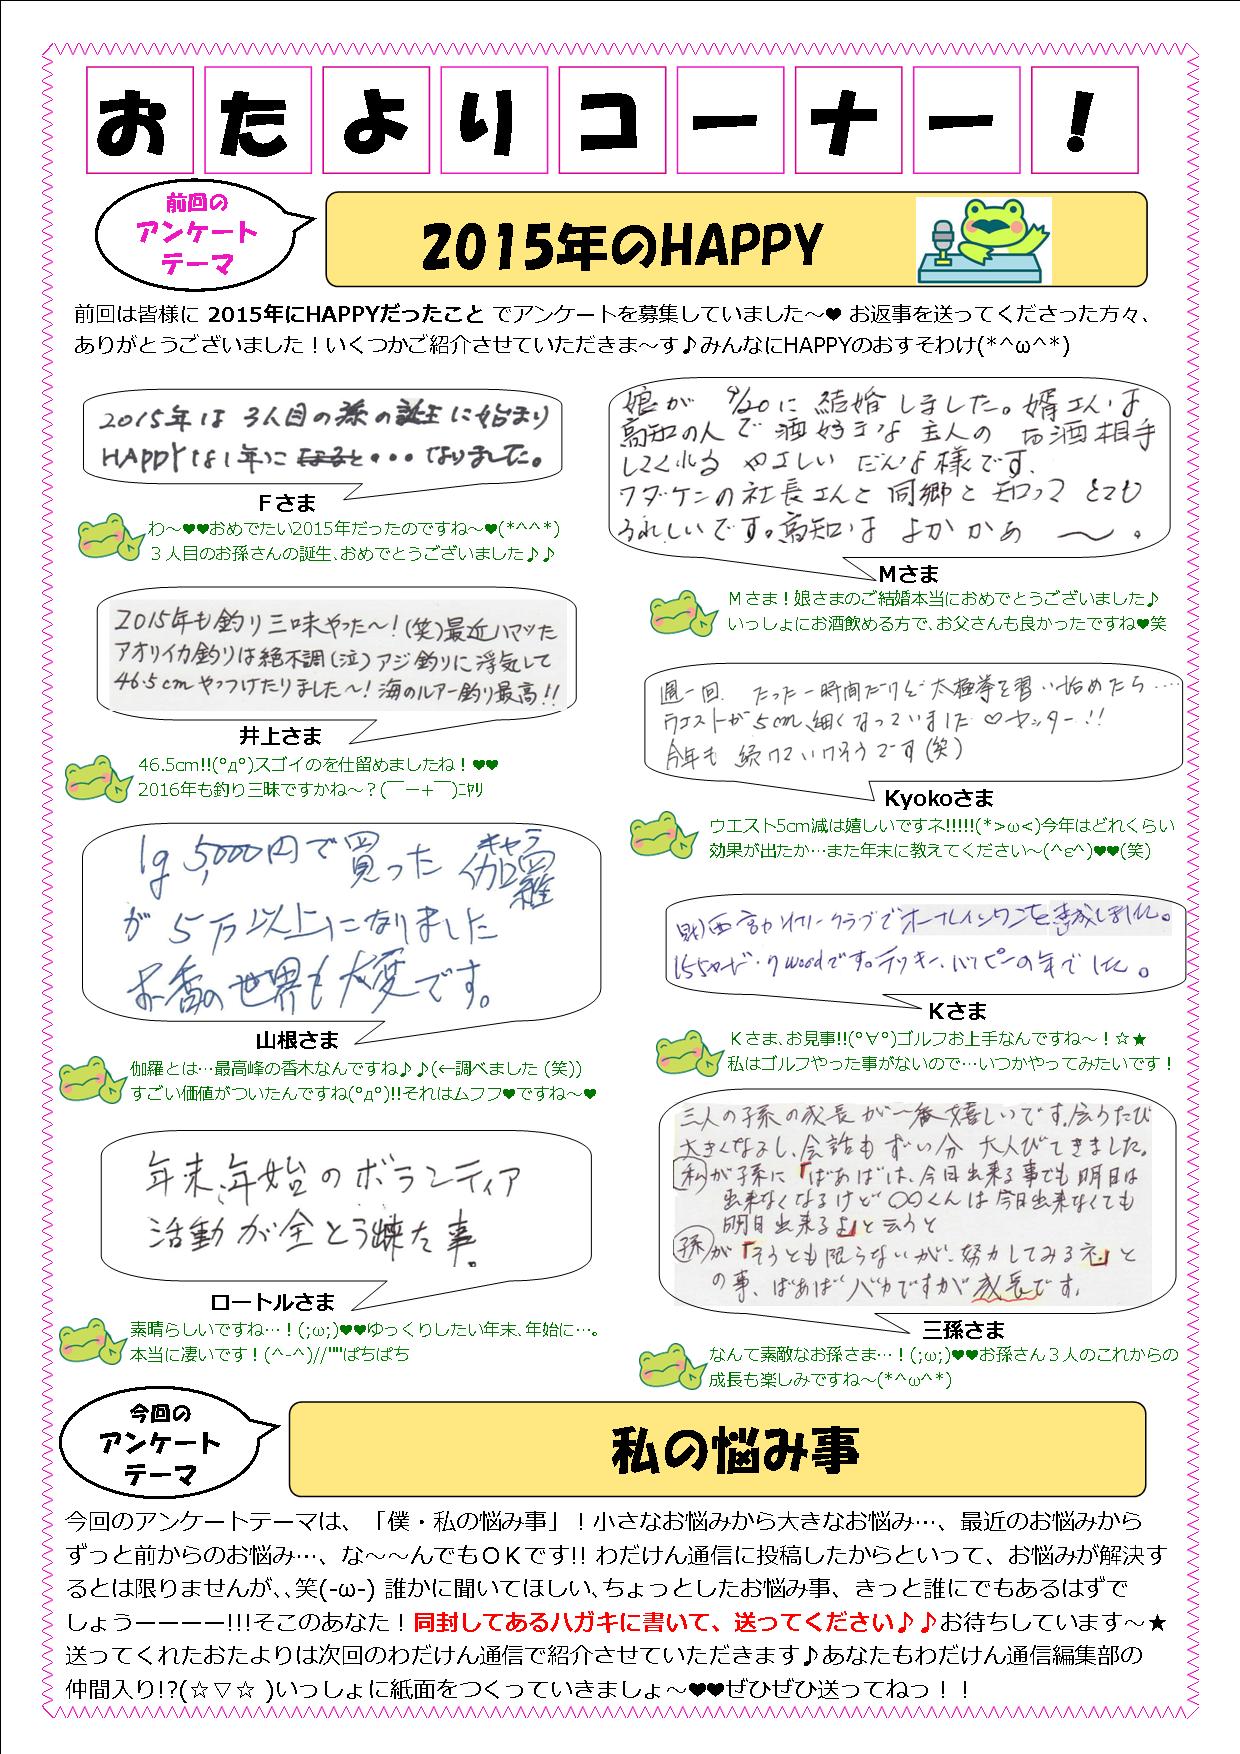 おたよりコーナー！
前回の
アンケート
テーマ
2015年のHAPPY
前回は皆様に 2015年にHAPPYだったこと でアンケートを募集していました～♥ お返事を送ってくださった方々、
ありがとうございました！いくつかご紹介させていただきま～す♪みんなにHAPPYのおすそわけ(*^ω^*)
2015年は 3人目の孫の誕生に始まり
HAPPYな1年に なりました。
Ｆさま
わ～♥♥おめでたい2015年だったのですね～♥(*^^*)
３人目のお孫さんの誕生、おめでとうございました♪♪
2015年も釣り三昧やった～！(笑)最近ハマッた
アオリイカ釣りは絶不調(泣)アジ釣りに浮気して
46.5cmやっつけたりました～！海のルアー釣り最高!!
井上さま
46.5cm!!(°д°)スゴイのを仕留めましたね！♥♥
2016年も釣り三昧ですかね～？(￣ー+￣)ﾆﾔﾘ
1g 5,000円で買った 伽羅
キャラ
が 5万以上になりました
お香の世界も大変です。
山根さま
伽羅とは…最高峰の香木なんですね♪♪(←調べました (笑))
すごい価値がついたんですね(°д°)!!それはムフフ♥ですね～♥
年末、年始のボランティア
活動が全とう出来た事。
ロートルさま
素晴らしいですね…！(;ω;)♥♥ゆっくりしたい年末、年始に…。
本当に凄いです！(^-^)//""ぱちぱち
娘が 9/20に 結婚しました。婿さんは
高知の人で酒好きな主人の お酒相手
してくれる やさしい だんな様です。
ワダケンの社長さんと同郷と知って とても
うれしいです。高知は よかかぁ～。
Мさま
Мさま！娘さまのご結婚本当におめでとうございました♪
いっしょにお酒飲める方で、お父さんも良かったですね♥笑
週一回、たった一時間だけど太極拳を習い始めたら‥‥
ウエストが5cm細くなっていました♡ヤッター!!
今年も 続けていけそうです(笑)
Kyokoさま
ウエスト5cm減は嬉しいですネ!!!!!(*>ω<)今年はどれくらい
効果が出たか…また年末に教えてください～(^ε^)♥♥(笑)
クラブでホールインワンを達成しました。
155ヤード・7woodです。ラッキー、ハッピーの年でした。
Ｋさま
Ｋさま、お見事!!(°∀°)ゴルフお上手なんですね～！☆★
私はゴルフやった事がないので…いつかやってみたいです！
三人の子孫の成長が一番嬉しいです。会うたび
大きくなるし、会話もずい分 大人びてきました。
私が子孫に「ばあばは、今日出来る事でも明日は
出来なくなるけど〇〇くんは今日出来なくても
明日出来るよ」と云うと
孫が「そうとも限らないが、努力してみるネ」と
の事、ばあばバカですが成長です。
三孫さま
なんて素敵なお孫さま…！(;ω;)♥♥お孫さん３人のこれからの
成長も楽しみですね～(*^ω^*)
今回の
アンケート
テーマ
私の悩み事
今回のアンケートテーマは、「僕・私の悩み事」！小さなお悩みから大きなお悩み…、最近のお悩みから
ずっと前からのお悩み…、な～～んでもＯＫです!! わだけん通信に投稿したからといって、お悩みが解決す
るとは限りませんが、、笑(-ω-) 誰かに聞いてほしい、ちょっとしたお悩み事、きっと誰にでもあるはずで
しょうーーーー!!!そこのあなた！同封してあるハガキに書いて、送ってください♪♪お待ちしています～★
送ってくれたおたよりは次回のわだけん通信で紹介させていただきます♪あなたもわだけん通信編集部の
仲間入り!?(☆▽☆ )いっしょに紙面をつくっていきましょ～♥♥ぜひぜひ送ってねっ！！